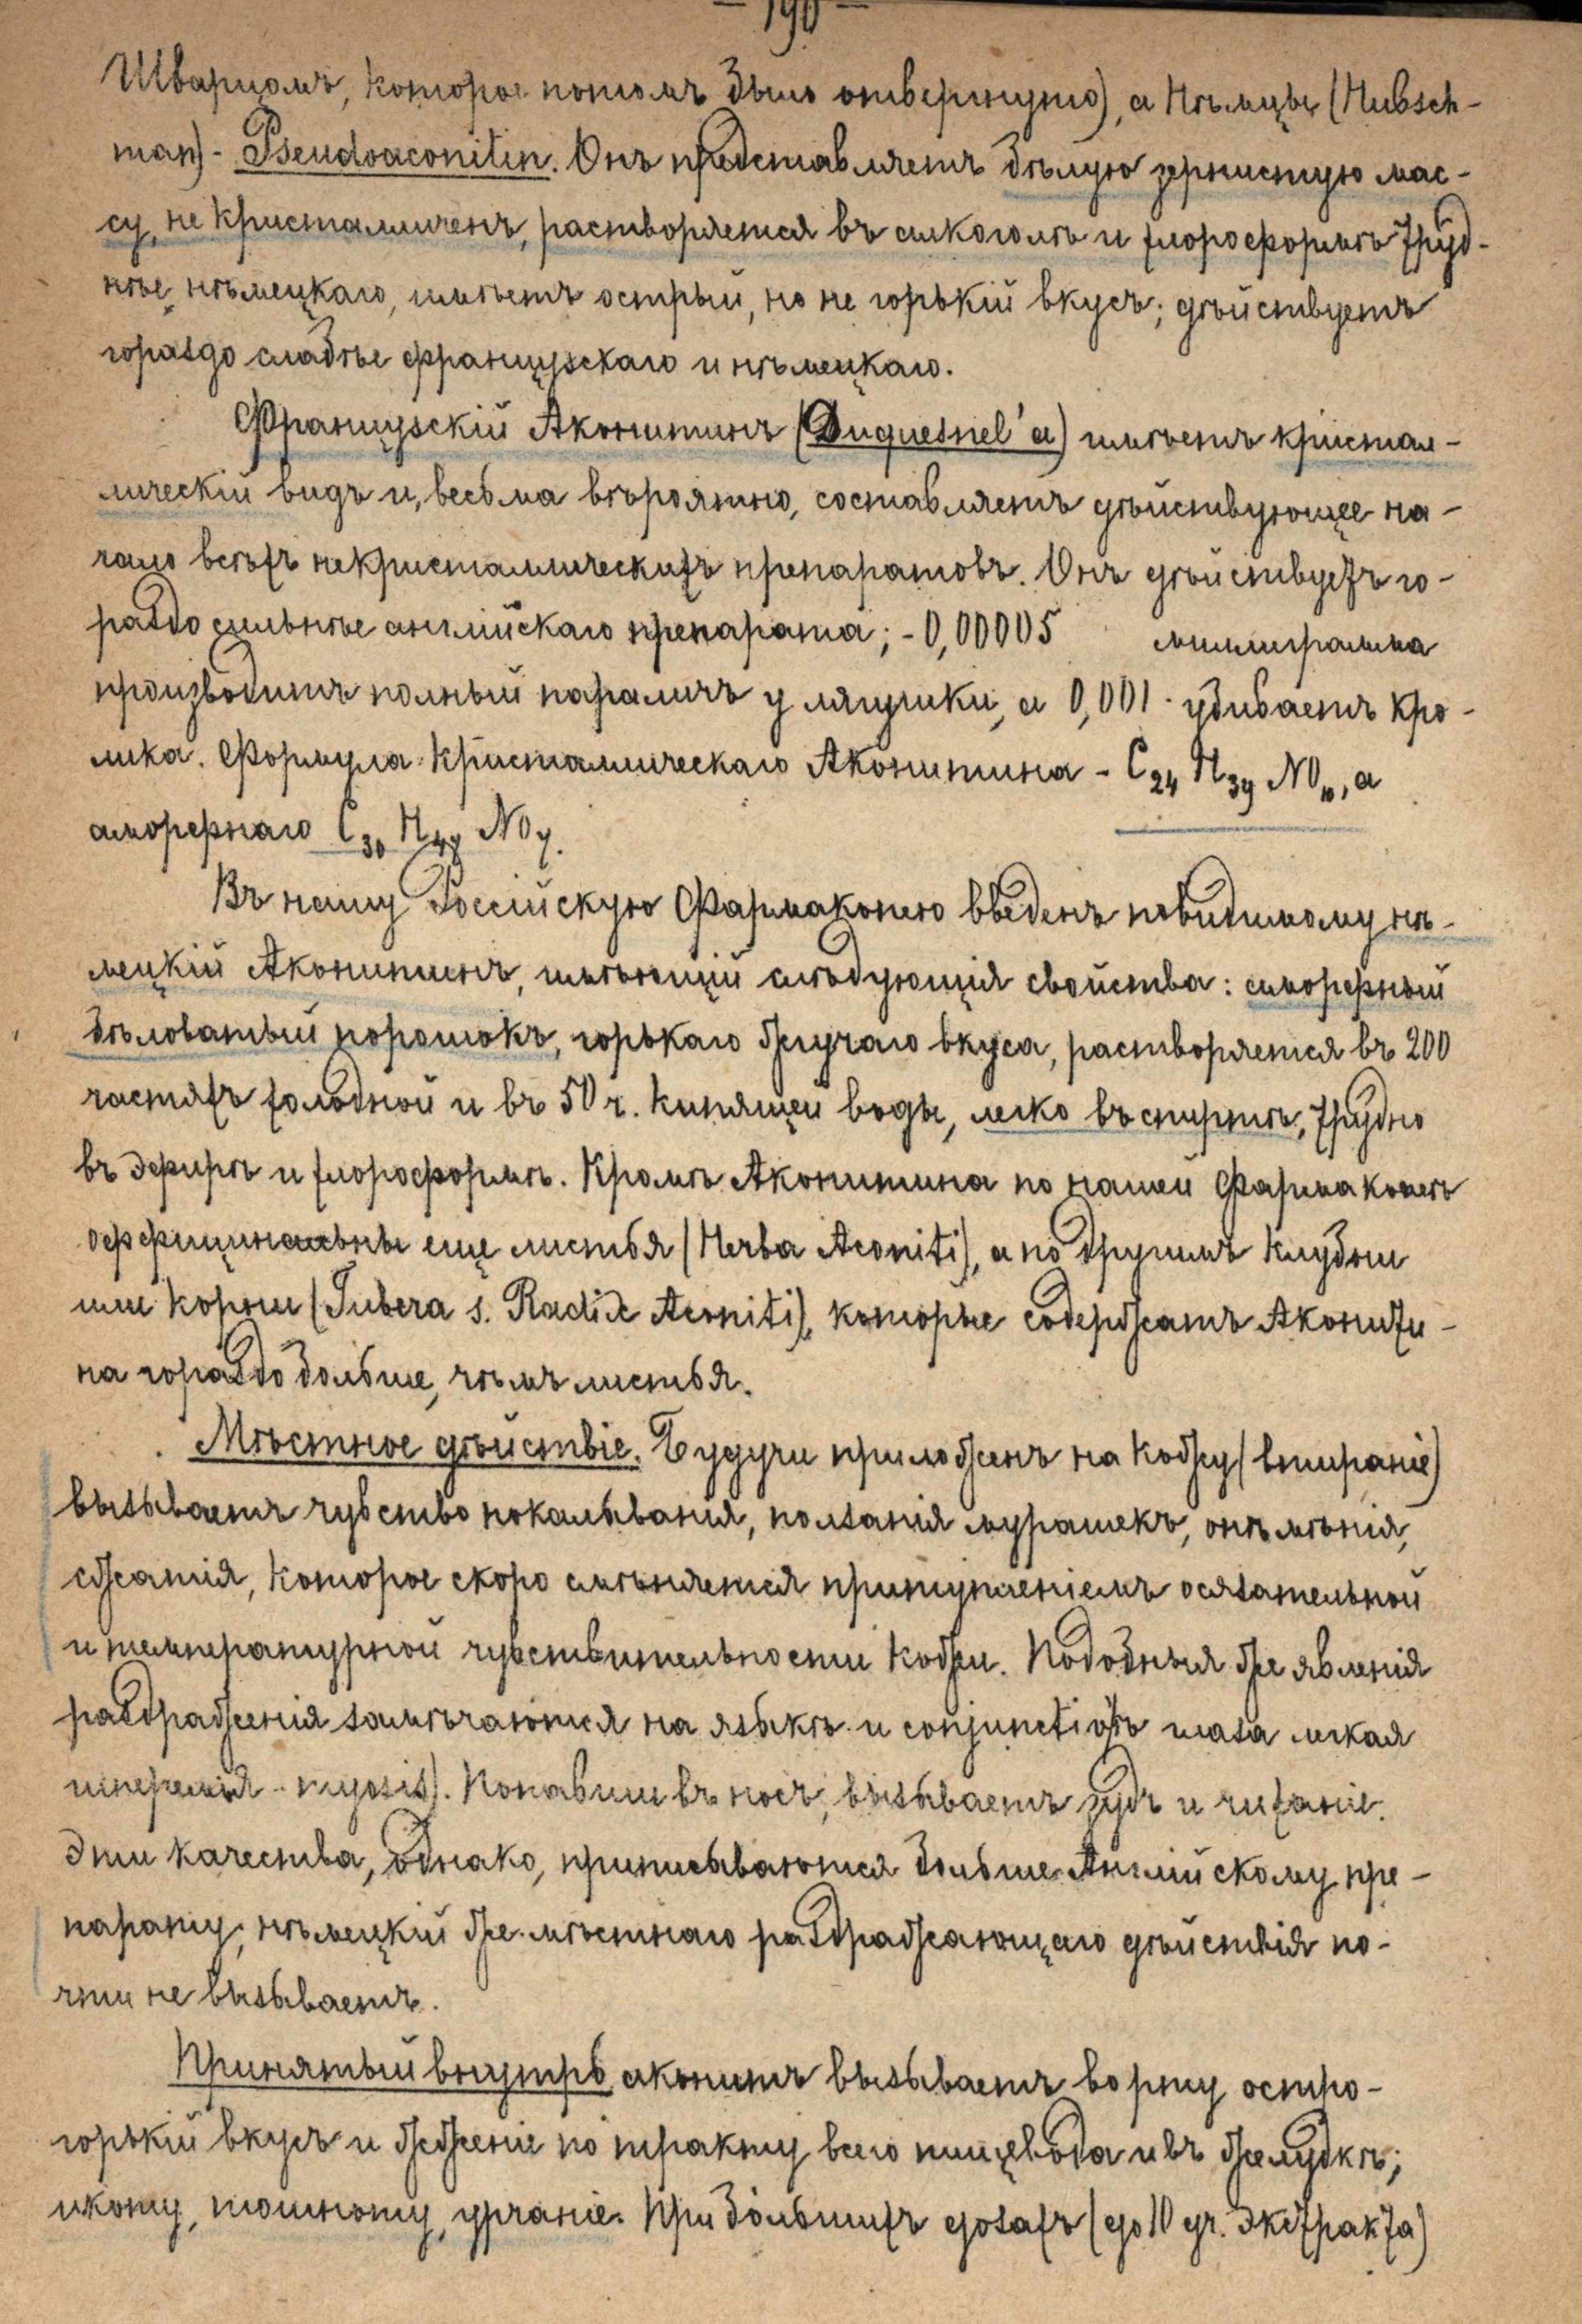 — 190 —
Шварцомъ, которое потомъ было отвергнуто), а Нѣмцы (Hubsch-
man) - Pseudoaconitin. Онъ представляетъ бѣлую зернистую мас-
су, не кристалличенъ, растворяется въ алкоголѣ и хлороформѣ труд-
нѣе нѣмецкаго, имѣетъ острый, но не горькій вкусъ; дѣйствуетъ
гораздо слабѣе французскаго и нѣмецкаго.
Французскій Аконитинъ (Duquesnel'a) имѣетъ кристал-
лическій видъ и, весьма вѣроятно, составляетъ дѣйствующее на-
чало всѣхъ некристаллическихъ препаратовъ. Онъ дѣйствуетъ го-
раздо сильнѣе англійскаго препарата; - 0,00005 миллиграмма
производитъ полный параличъ у лягушки, а 0,001 - убиваетъ кро-
лика. Формула кристаллическаго Аконитина - C24 H39 NO10, а
аморфнаго C30 H47 NO7.
Въ нашу Россійскую Фармакопею введенъ повидимому нѣ-
мецкій Аконитинъ, имѣющій слѣдующія свойства: аморфный
бѣловатый порошокъ, горькаго жгучаго вкуса, растворяется въ 200
частяхъ холодной и въ 50 ч. кипящей воды, легко въ спиртѣ, трудно
въ эфирѣ и хлороформѣ. Кромѣ Аконитина по нашей Фармакопеѣ
оффицинальны еще листья (Herba Aconiti), а по другимъ клубни
или корни (Tubera s. Radix Aconiti), которые содержатъ Аконити-
на гораздо больше, чѣмъ листья.
Мѣстное дѣйствіе. Будучи приложенъ на кожу (втираніе)
вызываетъ чувство покалыванія, ползанія мурашекъ, онѣмѣнія,
сжатія, которое скоро смѣняется притупленіемъ осязательной
и температурной чувствительности кожи. Подобныя же явленія
раздраженія замѣчаются на языкѣ и conjunctivѣ глаза легкая
гиперемія - myosis). Попавши въ носъ, вызываетъ зудъ и чиханіе.
Эти качества, однако, приписываются больше Англійскому пре-
парату, нѣмецкій же мѣстнаго раздражающаго дѣйствія по-
чти не вызываетъ.
Принятый внутрь аконитъ вызываетъ во рту остро-
горькій вкусъ и жженіе по тракту всего пищевода и въ желудкѣ;
икоту, тошноту, урчаніе. При бо́льшихъ дозахъ (до 10 гр. экстракта)